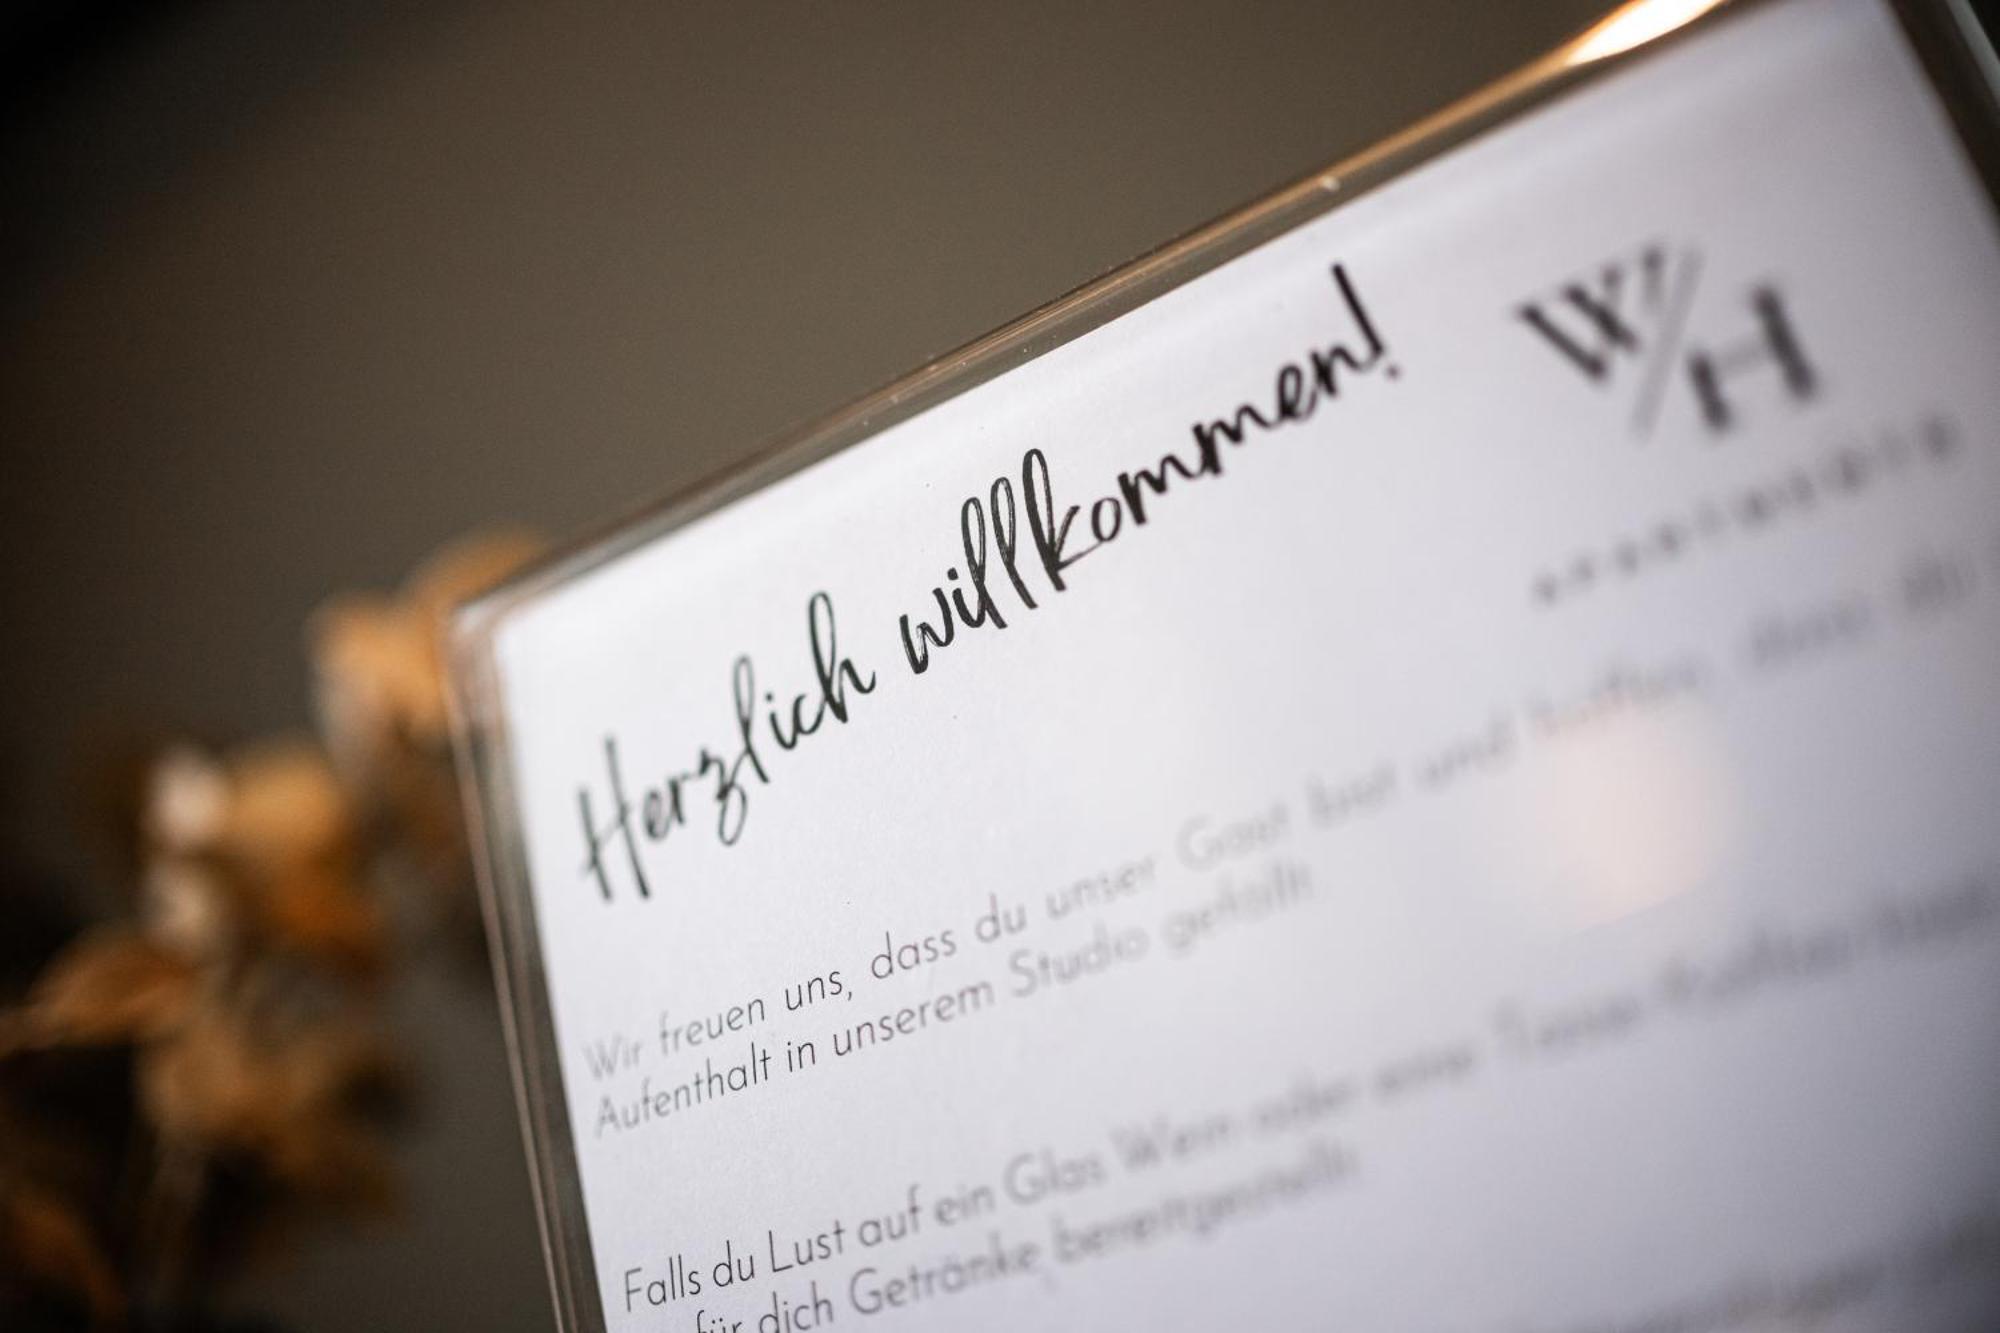 Herzlich willkommen!
W/H
Wir freuen uns, dass du unser Gast bist und hoffen, dass du
Aufenthalt in unserem Studio gefällt
Falls du Lust auf ein Glas Wein oder eine Tasse
für dich Getränke bereitgestellt